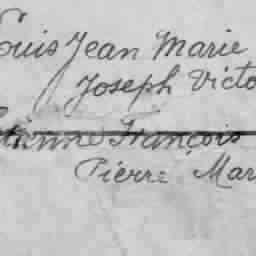 Louis Jean Marie
Joseph Victo
Etienne François
Pierre Mar